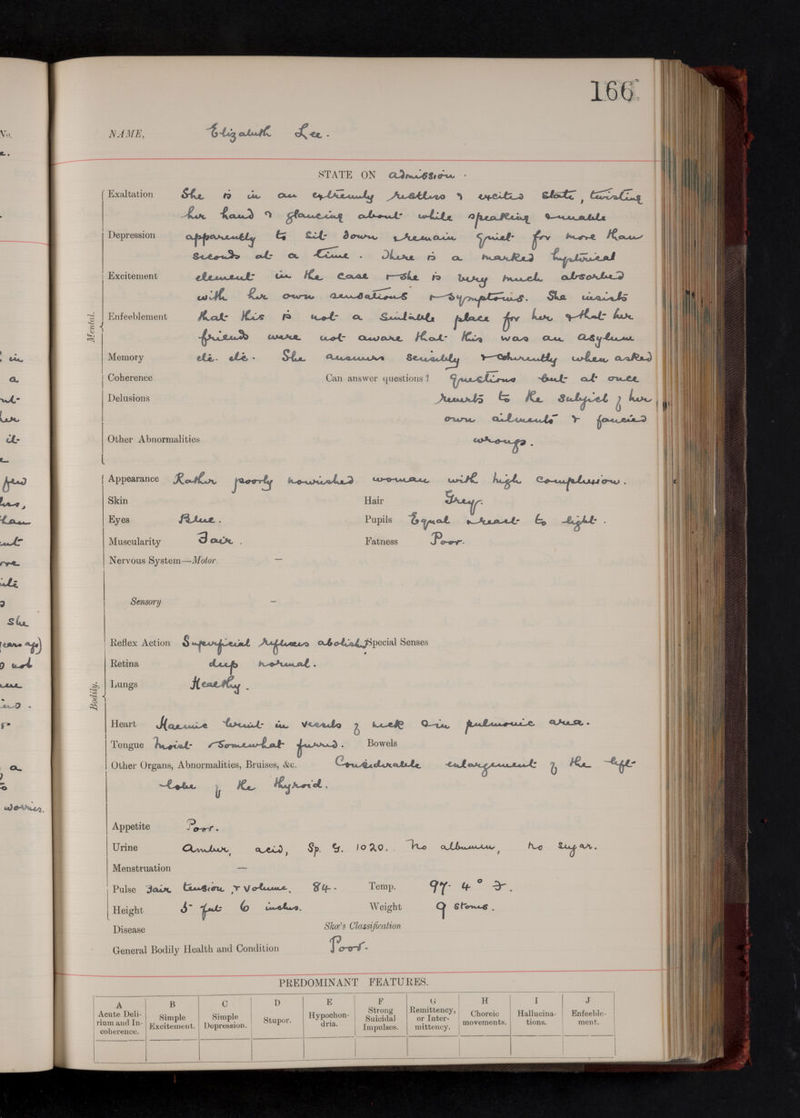 166
NAME, Elizabeth Lee.
STATE ON admission.
Mental.
Exaltation She is in an extremely restless & excited state, twisting
her hand & glancing about while speaking & unable
Depression apparently to sit down & remain quiet for more than
seconds at a time. There is a marked hysterical
Excitement element in the case & she is very much absorbed
with her own sensations & symptoms. She insists
Enfeeblement that this is not a suitable place for her & that her
friends were not aware that this was an asylum
Memory etc. etc. She answers sensibly & coherently when asked
Coherence Can answer questions? questions but at once
Delusions reverts to the subject of her
own ailments & fancied
Other Abnormalities wrongs.
Bodily.
Appearance Rather poorly nourished woman with high complexion.
Skin Hair Grey.
Eyes Blue. Pupils Equal & react to light.
Muscularity Fair. Fatness Poor.
Nervous System—Motor —
Sensory —
Reflex Action Superficial reflexes abolish. Special Senses
Retina deep normal.
Lungs Healthy.
Heart Haemic bruit in vessels of neck & in pulmonic area.
Tongue Moist & somewhat furred. Bowels
Other Organs, Abnormalities, Bruises, &c. Considerable enlargement of the left
lobe of the thyroid.
Appetite Poor.
Urine Amber, acid, Sp. G. 1020. No albumin, no sugar.
Menstruation —
Pulse Fair tension & volume, 84. Temp. 97.4° F.
Height 5 feet 6 inches. Weight 9 stones.
Disease Skae's Classification
General Bodily Health and Condition Poor.
PREDOMINANT FEATURES.
A B C D E F G H I J
Acute Delirium and Incoherence. Simple Excitement. Simple Depression. Stupor. Hypochondria. Strong Suicidal Impulses. Remittency, or Intermittency. Choreic movements. Hallucinations. Enfeeblement.